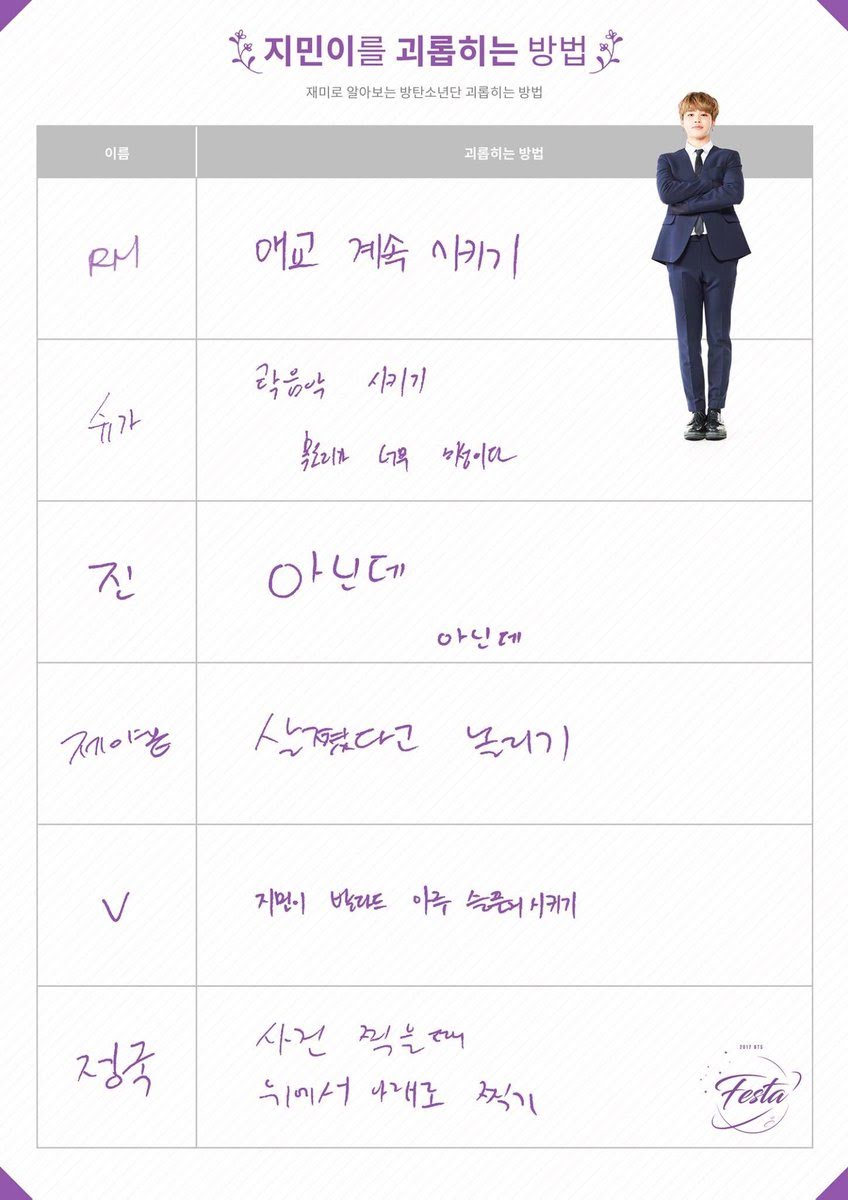 지민이를 괴롭히는 방법
재미로 알아보는 방탄소년단 괴롭히는 방법
이름
괴롭히는 방법
RM
애교 계속 시키기
슈가
락음악 시키기
목소리가 너무 미성이다
진
아닌데
아닌데
제이홉
살쪘다고 놀리기
V
지민이 발라드 아주 슬픈거 시키기
정국
사진 찍을때
위에서 아래로 찍기
2017 BTS
Festa